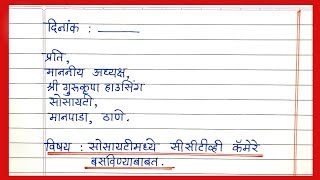 दिनांक : ________
प्रति,
माननीय अध्यक्ष,
श्री गुरुकृपा हाउसिंग
सोसायटी,
मानपाडा, ठाणे.
विषय : सोसायटीमध्ये सीसीटीव्ही कॅमेरे
बसविण्याबाबत.